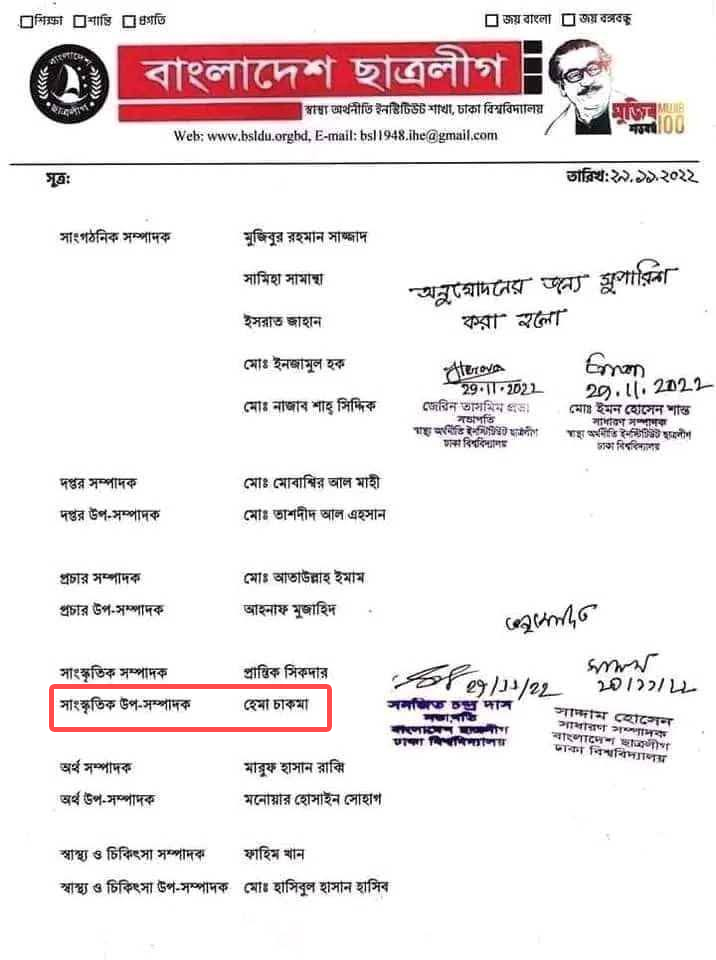 শিক্ষা শান্তি প্রগতি
জয় বাংলা জয় বঙ্গবন্ধু
বাংলাদেশ ছাত্রলীগ
বাংলাদেশ ছাত্রলীগ
স্বাস্থ্য অর্থনীতি ইনস্টিটিউট শাখা, ঢাকা বিশ্ববিদ্যালয়
মুজিব শতবর্ষ MUJIB 100
Web: www.bsldu.orgbd, E-mail: bsl1948.ihe@gmail.com
সূত্র:
তারিখ: ২৯.১১.২০২২
সাংগঠনিক সম্পাদক মুজিবুর রহমান সাজ্জাদ
সামিহা সামান্থা
ইসরাত জাহান
মোঃ ইনজামুল হক
মোঃ নাজাব শাহ্ সিদ্দিক
অনুমোদনের জন্য সুপারিশ
করা হলো
29.11.2022
জেরিন তাসমিম প্রভা
সভাপতি
স্বাস্থ্য অর্থনীতি ইনস্টিটিউট ছাত্রলীগ
ঢাকা বিশ্ববিদ্যালয়
29.11.2022
মোঃ ইমন হোসেন শান্ত
সাধারণ সম্পাদক
স্বাস্থ্য অর্থনীতি ইনস্টিটিউট ছাত্রলীগ
ঢাকা বিশ্ববিদ্যালয়
দপ্তর সম্পাদক মোঃ মোবাশ্বির আল মাহী
দপ্তর উপ-সম্পাদক মোঃ তাশদীদ আল এহসান
প্রচার সম্পাদক মোঃ আতাউল্লাহ ইমাম
প্রচার উপ-সম্পাদক আহনাফ মুজাহিদ
অনুমোদিত
সাংস্কৃতিক সম্পাদক প্রান্তিক সিকদার
সাংস্কৃতিক উপ-সম্পাদক হেমা চাকমা
২৯/১১/২২
সনজিত চন্দ্র দাস
সভাপতি
বাংলাদেশ ছাত্রলীগ
ঢাকা বিশ্ববিদ্যালয়
সাদ্দাম হোসেন
সাধারণ সম্পাদক
বাংলাদেশ ছাত্রলীগ
ঢাকা বিশ্ববিদ্যালয়
অর্থ সম্পাদক মারুফ হাসান রাব্বি
অর্থ উপ-সম্পাদক মনোয়ার হোসাইন সোহাগ
স্বাস্থ্য ও চিকিৎসা সম্পাদক ফাহিম খান
স্বাস্থ্য ও চিকিৎসা উপ-সম্পাদক মোঃ হাসিবুল হাসান হাসিব